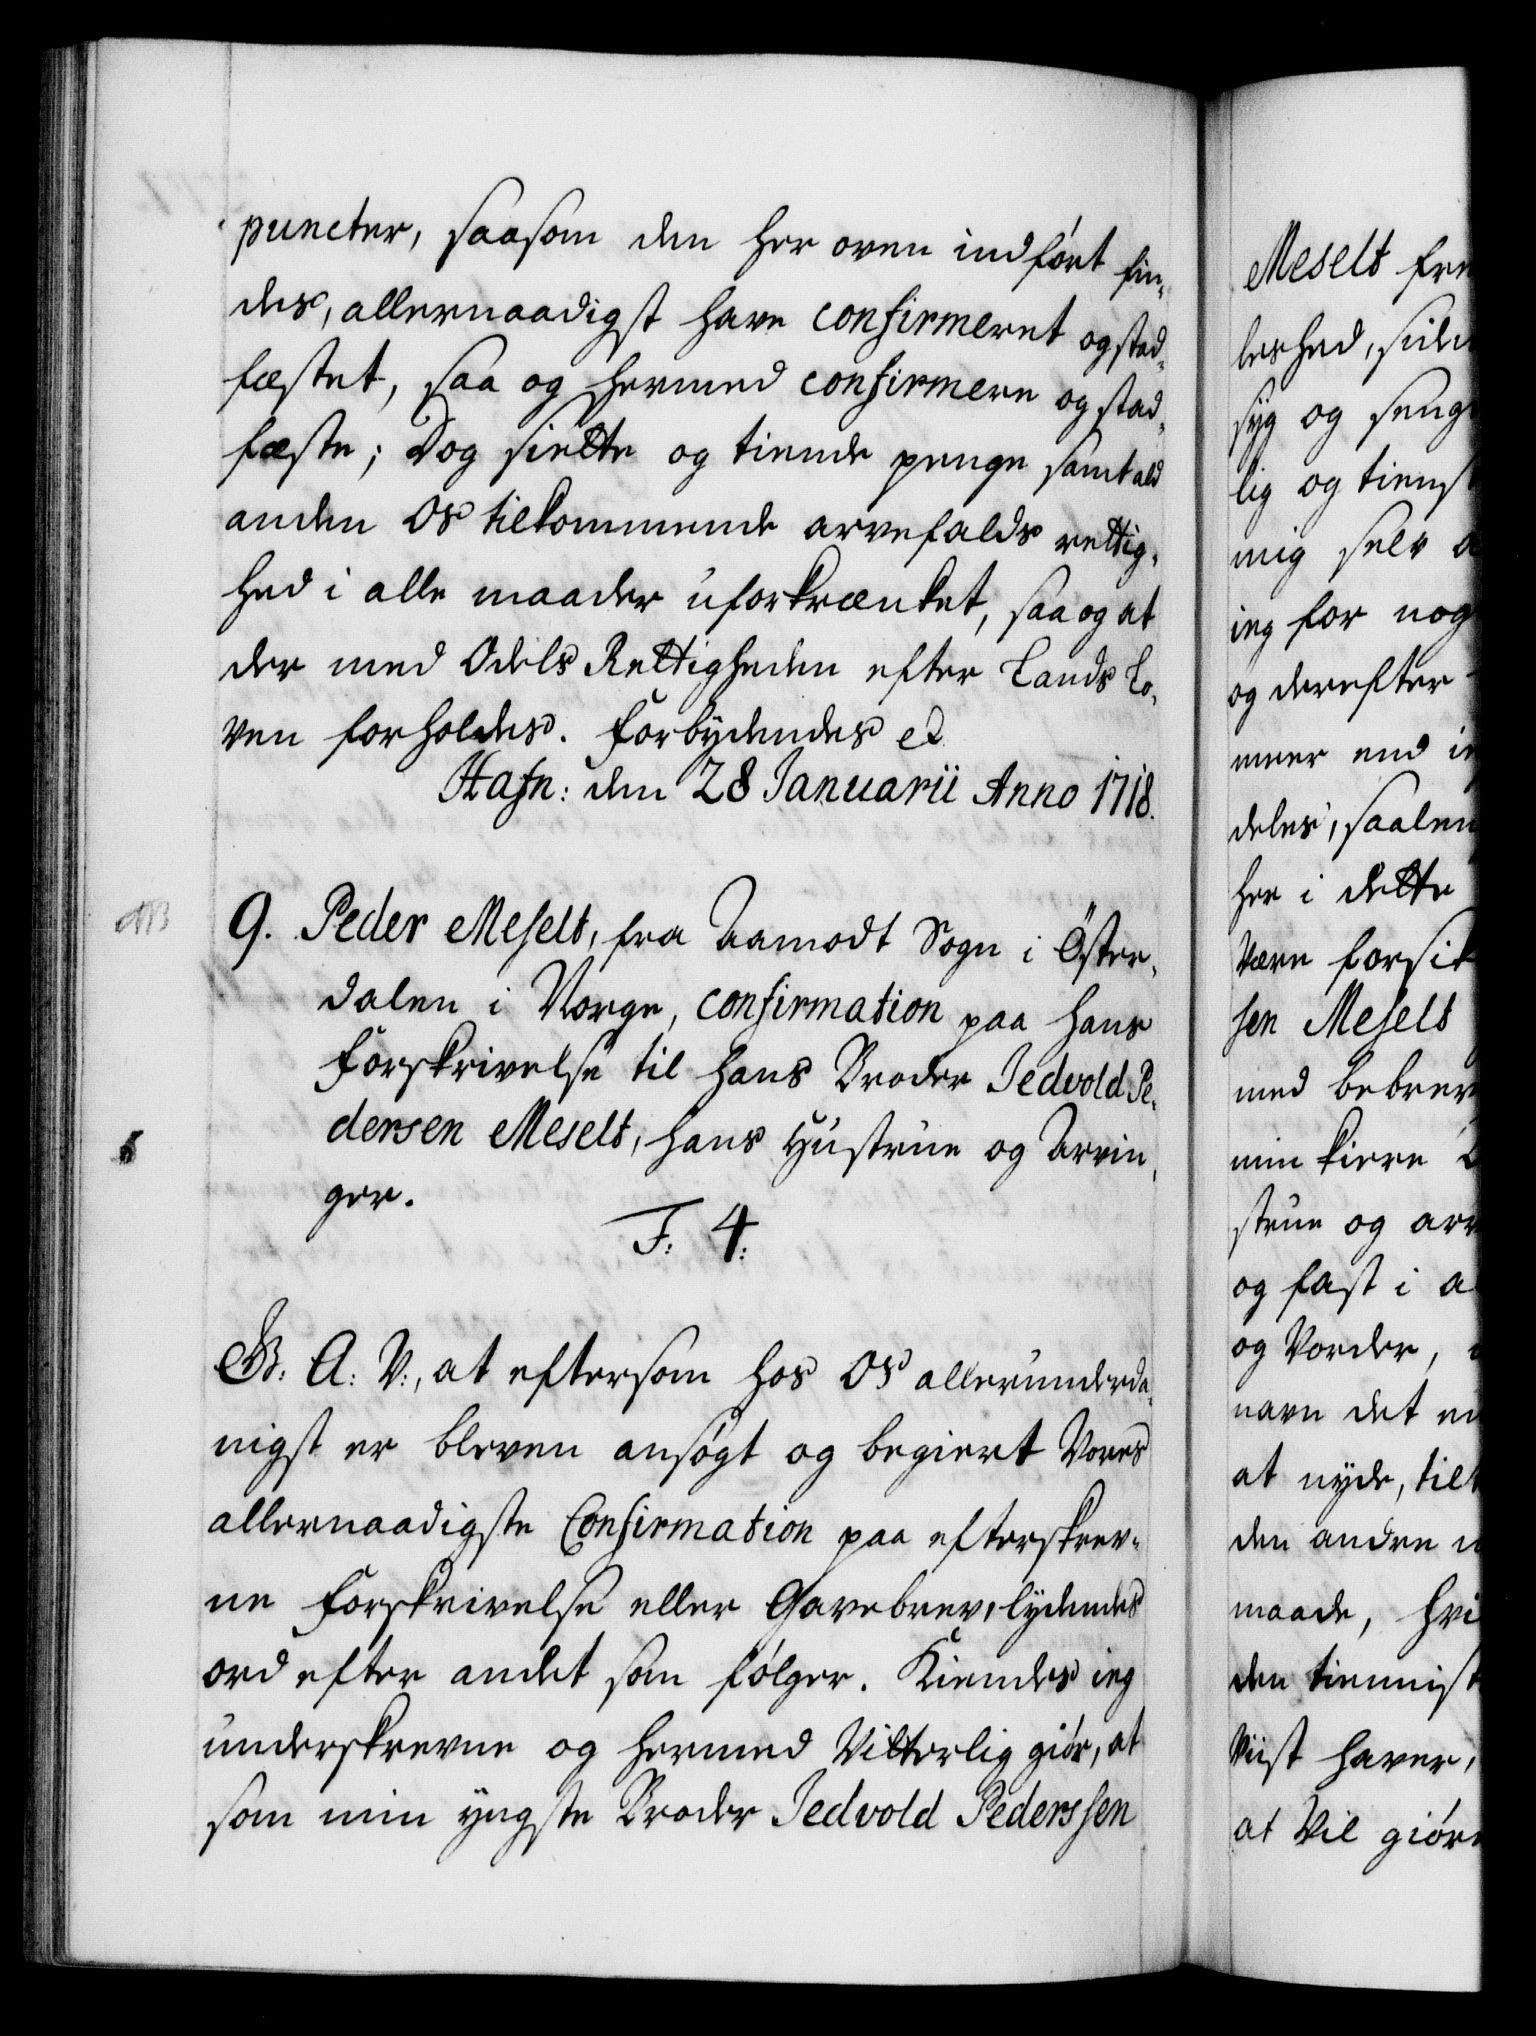 puncter, saasom den her oven indført fin-
des, allernaadigst have confirmeret og stad-
fæstet, saa og hermed confirmere og stad-
fæste; Dog siette og tiende penge samt ald
anden Os tilkommende arvefalds rettig-
hed i alle maader uforkrænket, saa og at
der med Odels Rettigheden efter Lands Lo-
ven forholdes. Forbydendes etc
Hafn: den 28 Januarii Anno 1718.
NB
9. Peder Meselt, fra Aamodt Sogn i Öster-
dalen i Norge, confirmation paa hans
Forskrivelse til hans Broder Jedvold Pe-
dersen Meselt, hans Hustrue og Arvin-
ger.
F: 4:
G: A: V:, at eftersom hos Os allerunderda-
nigst er bleven ansøgt og begiert Vores
allernaadigste Confirmation paa efterskrev-
ne Forskrivelse eller Gavebrev, lydendes
ord efter andet som følger. Kiendes ieg
underskrevne og hermed Vitterlig giör, at
som min yngste Broder Jedvold Pederssen
Meselt
leshed,
syg og
lig og
mig selv
ieg for
og derefter
meer end
deles,
her i dette
Være
sen Meselt
med
min kiere
strue og
og fast i
og Vorder,
navn det
at nyde,
den andre
maade,
den
Viist haver,
at Vil